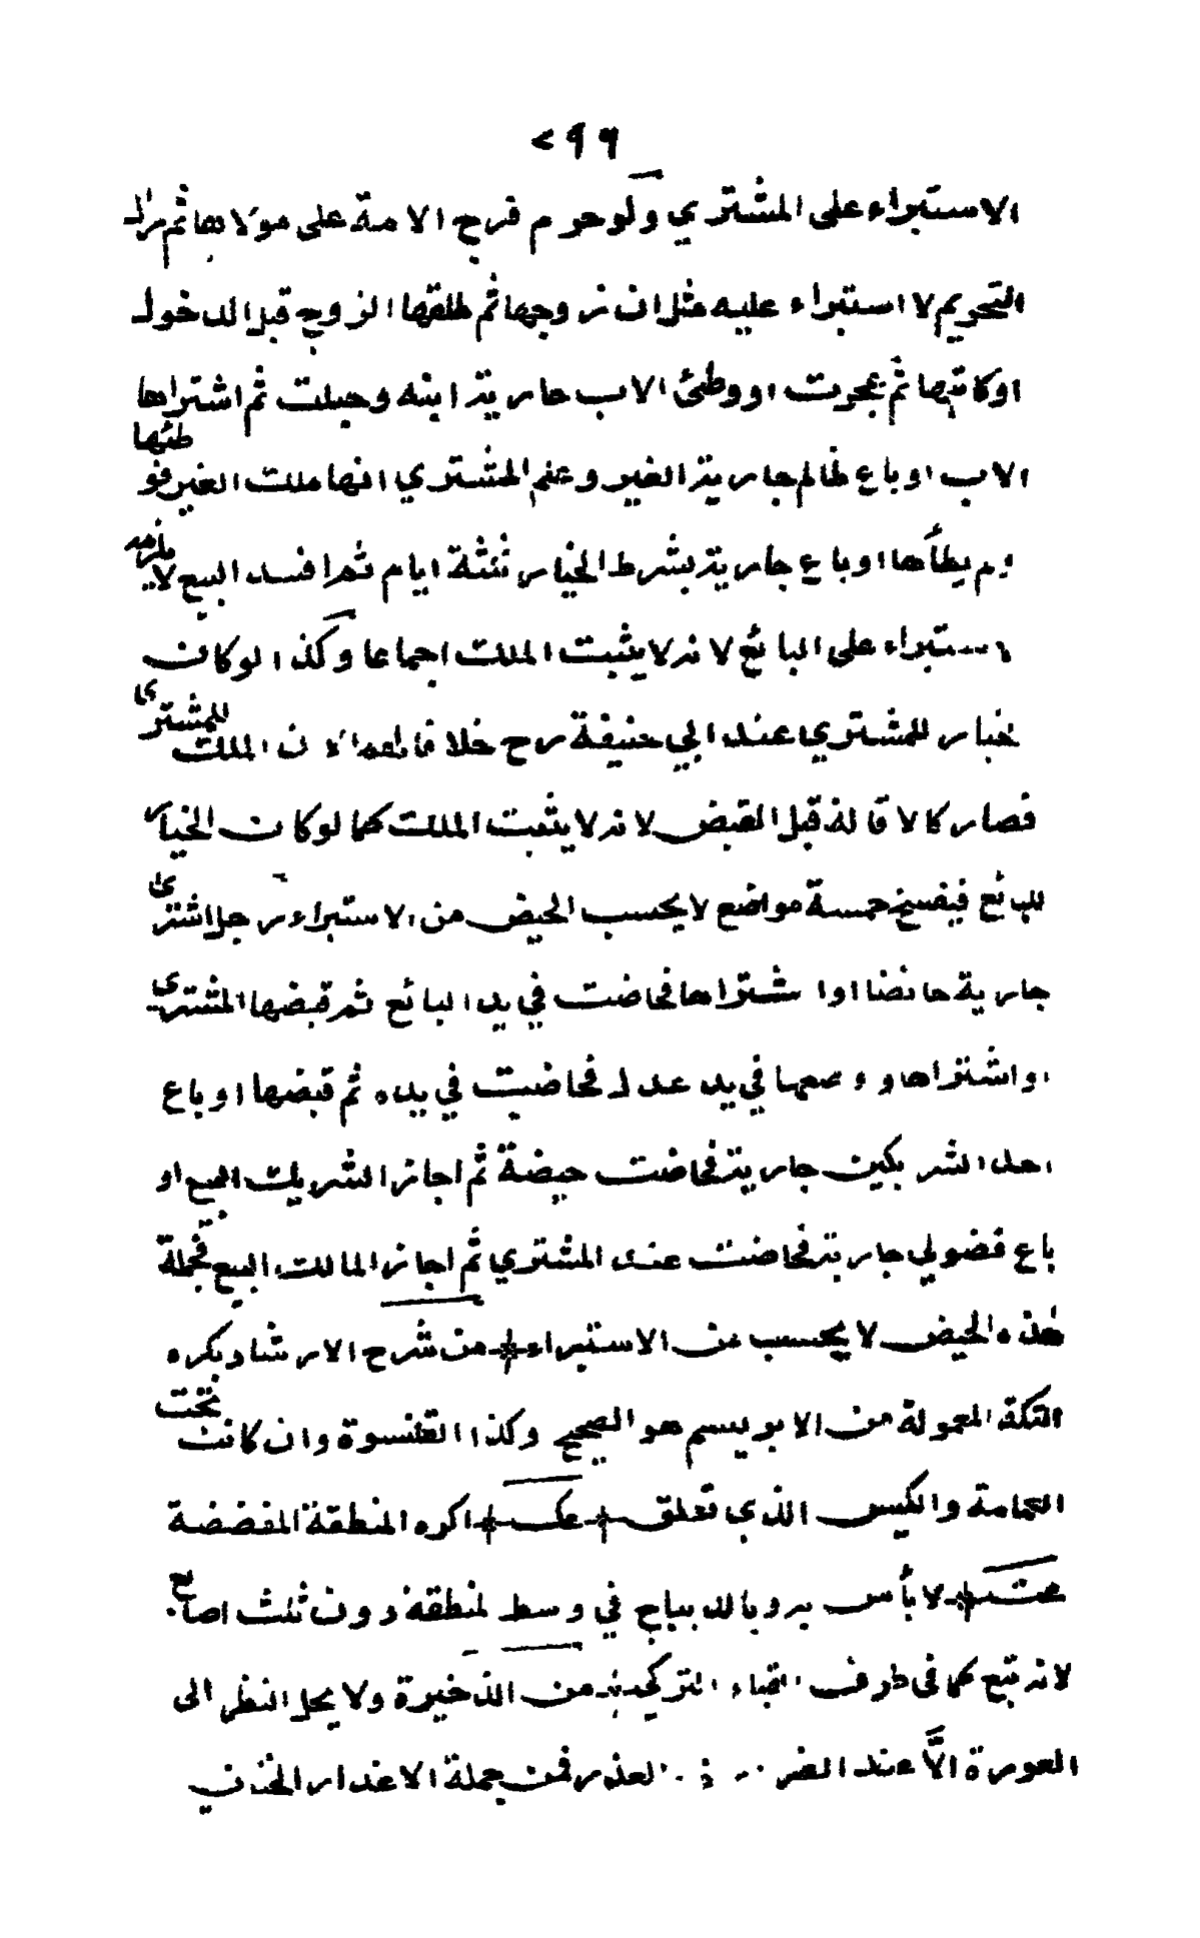 ٢٩٩
الاستبراء على المشتري ولو حرم فرج الامة على مولاها ثم زال
التحريم لا استبراء عليه مثل ان زوجها ثم طلقها الزوج قبل الدخول
او كاتبها ثم عجزت او وطئ الاب جارية ابنه وحبلت ثم اشتراها
الاب او باع ظالم جارية الغير وعلم المشتري انها ملك الغير فوطئها
ولم يطأها او باع جارية بشرط الخيار ثلثة ايام ثم افسد البيع لا يلزمه
استبراء على البائع لانه لا يثبت الملك اجماعا وكذا لو كان
خيار للمشتري عند ابي حنيفة رح خلافا لهما لان الملك للمشترى
فصار كالاقالة قبل القبض لانه لا يثبت الملك كما لو كان الخيار
للبائع فيفسخ خمسة مواضع لا يحسب الحيض من الاستبراء رجل اشترى
جارية حائضا او اشتراها فحاضت في يد البائع ثم قبضها المشترى
او اشتراها و وضعها في يد عدل فحاضت في يده ثم قبضها او باع
احد الشريكين جارية فحاضت حيضة ثم اجاز الشريك البيع او
باع فضولي جارية فحاضت عند المشتري ثم اجاز المالك البيع فجملة
هذه الحيض لا يحسب من الاستبراء من شرح الارشاد يكره
التكة المعمولة من الابريسم هو الصحيح وكذا القلنسوة وان كانت تحت
العمامة والكيس الذي تعلق عك اكره المنطقة المفضضة
عت لا بأس به وبالديباج في وسط لمنطقة دون ثلث اصابع
لانه تبع كما في طرف القباء التركي من الذخيرة ولا يحل النظر الى
العورة الّا عند العذر فمن جملة الاعذار الختان